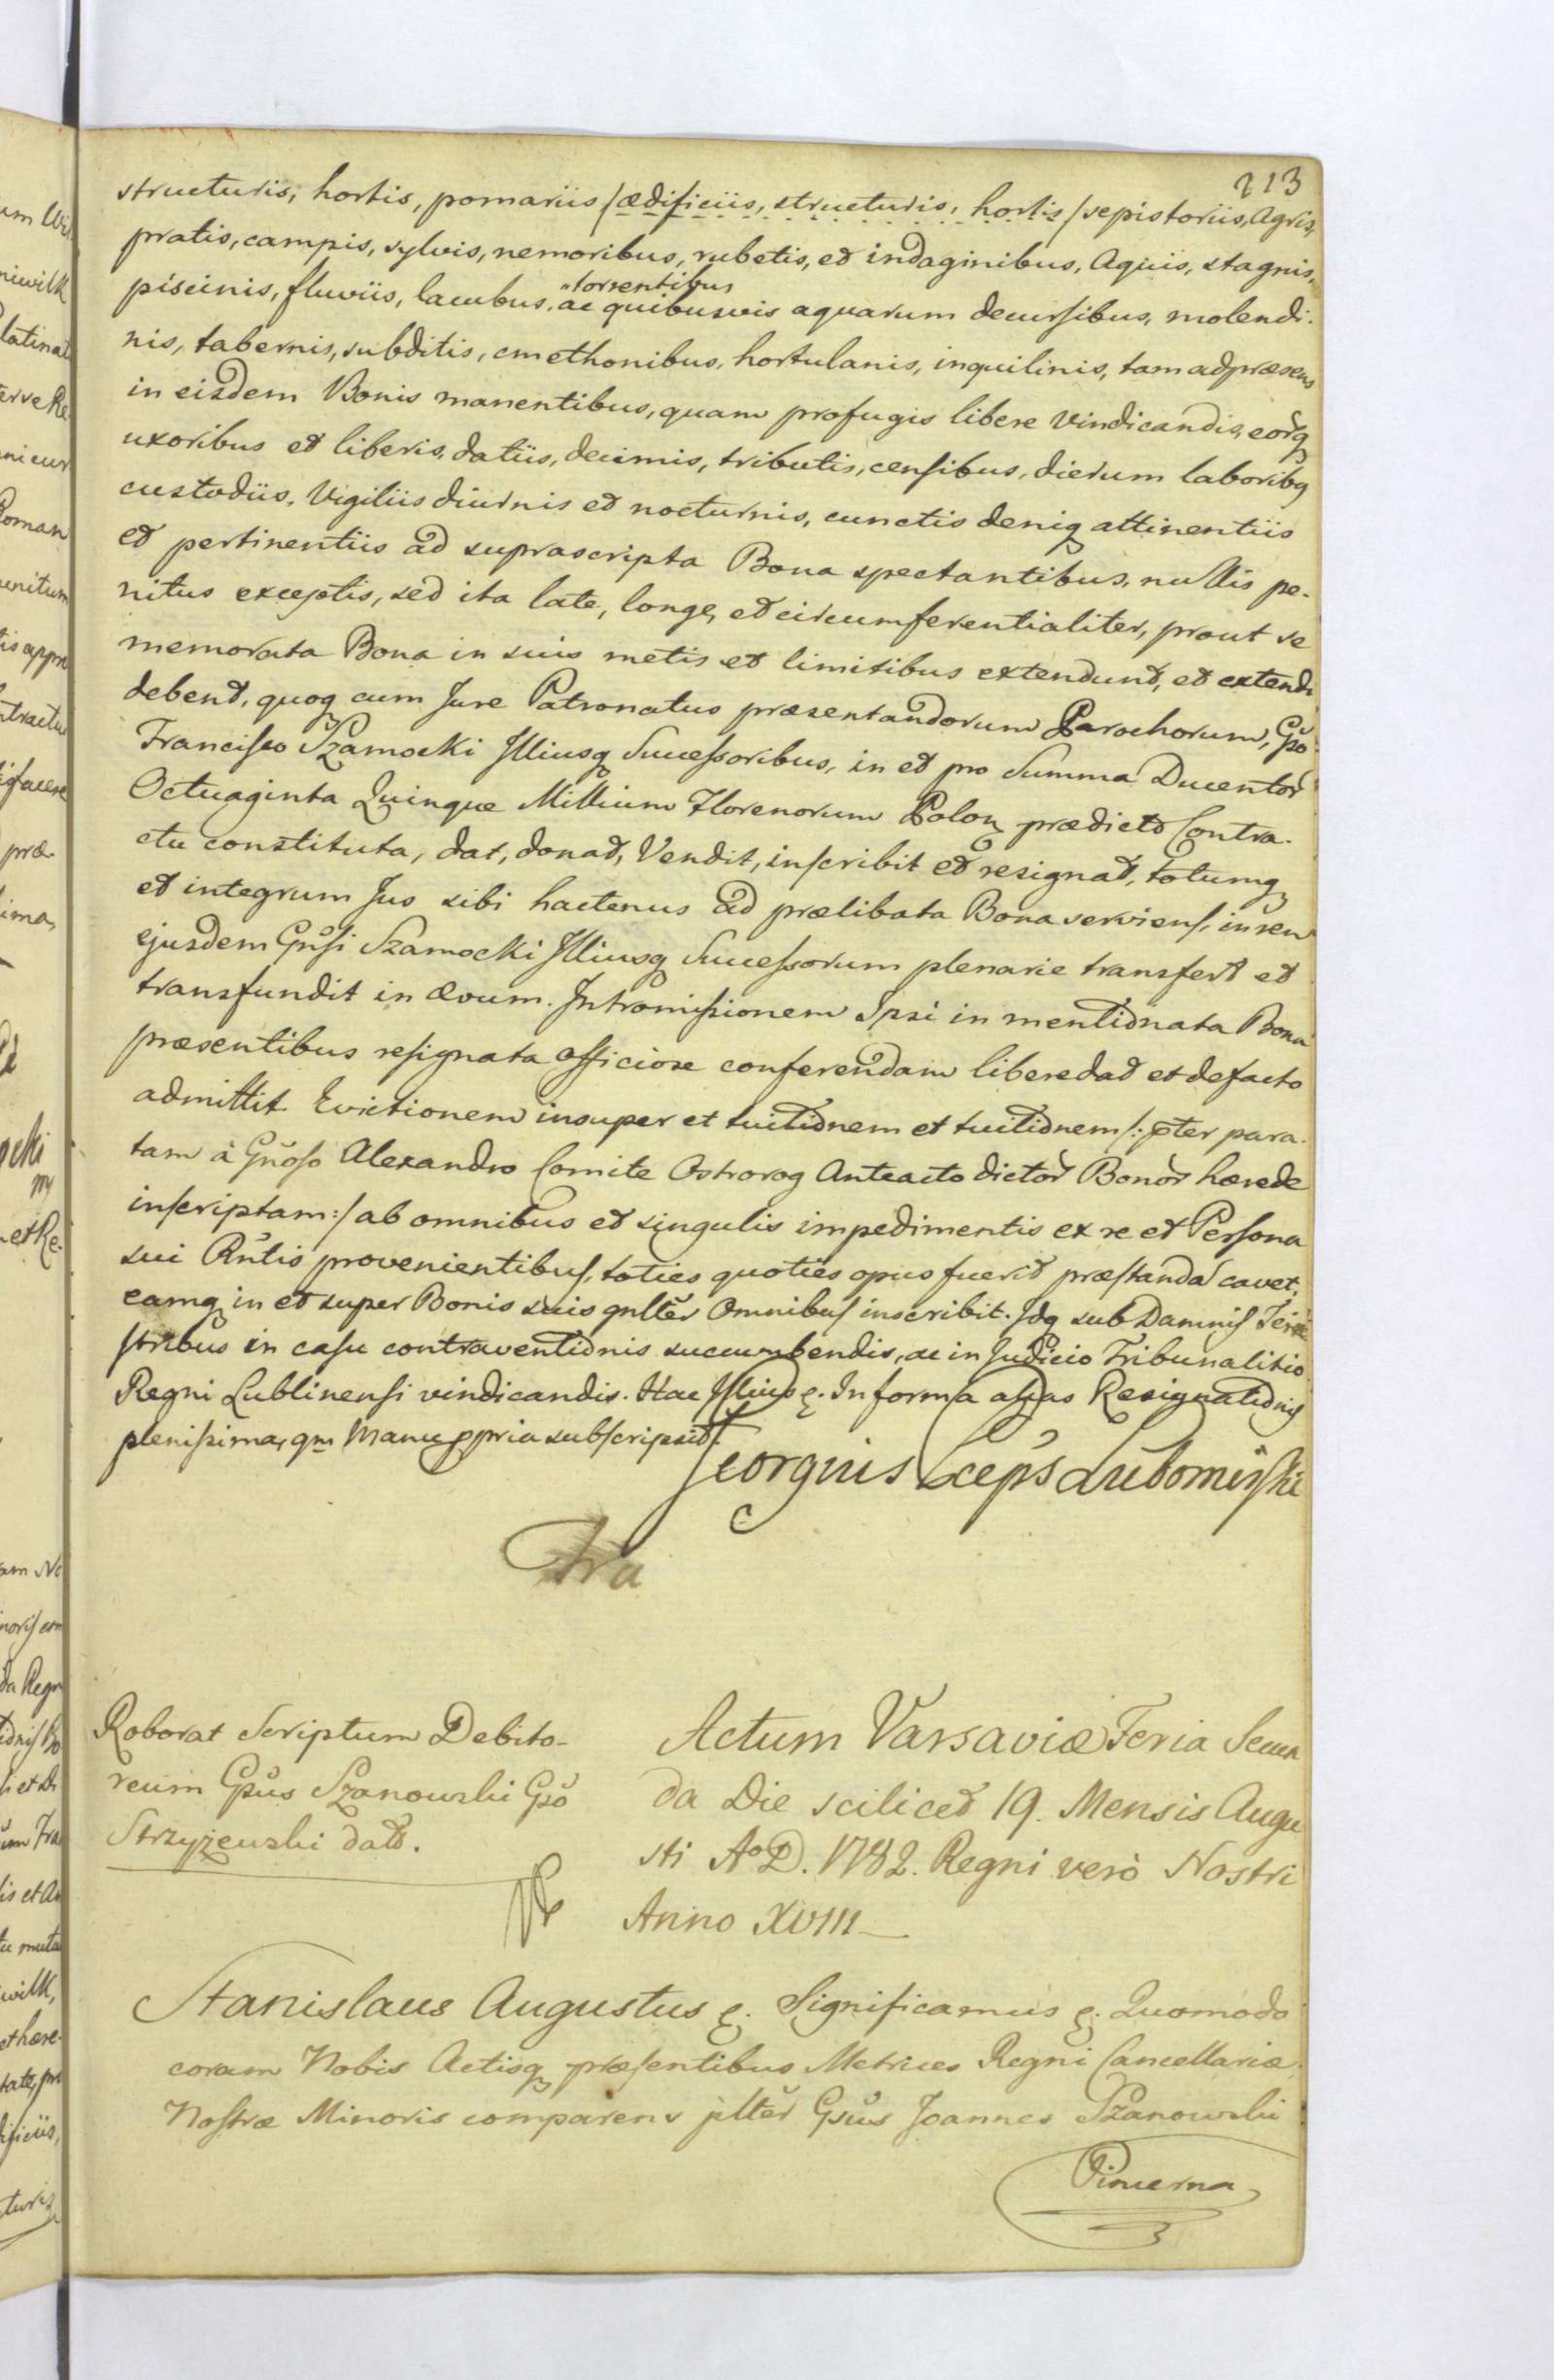 213
structuris, hortis, pomariis /ædificiis, structuris, hortis/ sepistoriis, Agris,
pratis, campis, sylvis, nemoribus, rubetis, et indaginibus, Aquis, stagnis,
piscinis, fluviis, lacubus, torrentibus ac quibusvis aquarum decursibus, molendi-
nis, tabernis, subditis, cmethonibus, hortulanis, inquilinis, tam adpræsens
in eisdem Bonis manentibus, quam profugis libere vindicandis, eorq
uxoribus et liberis, datiis, decimis, tributis, censibus, dierum laboribq
custodiis, Vigiliis diurnis et nocturnis, cunctis deniq attinentiis
et pertinentiis ad suprascripta Bona spectantibus, nullis pe-
nitus exceptis, sed ita late, longe, et circumferentialiter, prout se
memorata Bona in suis metis et limitibus extendunt, et extendi
debent, quoq cum Jure Patronatus præsentandorum Parochorum, Gso
Francisco Szamocki Illiusq Successoribus, in et pro Summa Ducentor
Octuaginta Quinque Millium Florenorum Polon prædicto Contra-
ctu constituta, dat, donat, Vendit, inscribit et resignat, totumq
et integrum Jus sibi hactenus ad prælibata Bona serviens, in rem
ejusdem Gnsi Szamocki Illiusq Successorum plenarie transfert et
transfundit in ævum. Intromissionem Ipsi in mentionata Bona
præsentibus resignata officiose conferendam libere dat et defacto
admittit. Evictionem insuper et tuitionem et tuitionem /: pter para-
tam à Gnoso Alexandro Comite Ostrorog Anteacto dictor Bonor hærede
inscriptam :/ ab omnibus et singulis impedimentis ex re et Persona
sui Rntis provenientibus, toties quoties opus fuerit præstanda cavet,
eamq in et super Bonis suis gnlter Omnibus inscribit. Idq sub Damnis Terre
stribus in casu contraventionis succumbendis, ac in Judicio Tribunalitio
Regni Lublinensi vindicandis. Hac Illius &. In forma Resignationis
plenissima, qm Manu ppria subscripsit.
Georgius Xceps Lubomirski
Roborat Scriptum Debito-
reum Gsus Szanowski Gso
Strzyżewski dat.
Actum Varsaviæ Feria Secun
da Die scilicet 19. Mensis Augu
sti A°D. 1782. Regni verò Nostri
Anno XVIII
Stanislaus Augustus &. Significamus &. Quomodo
coram Nobis Actisq præsentibus Metrices Regni Cancellariæ
Nostræ Minoris comparens plter Gsus Joannes Szanowski
Pincerna